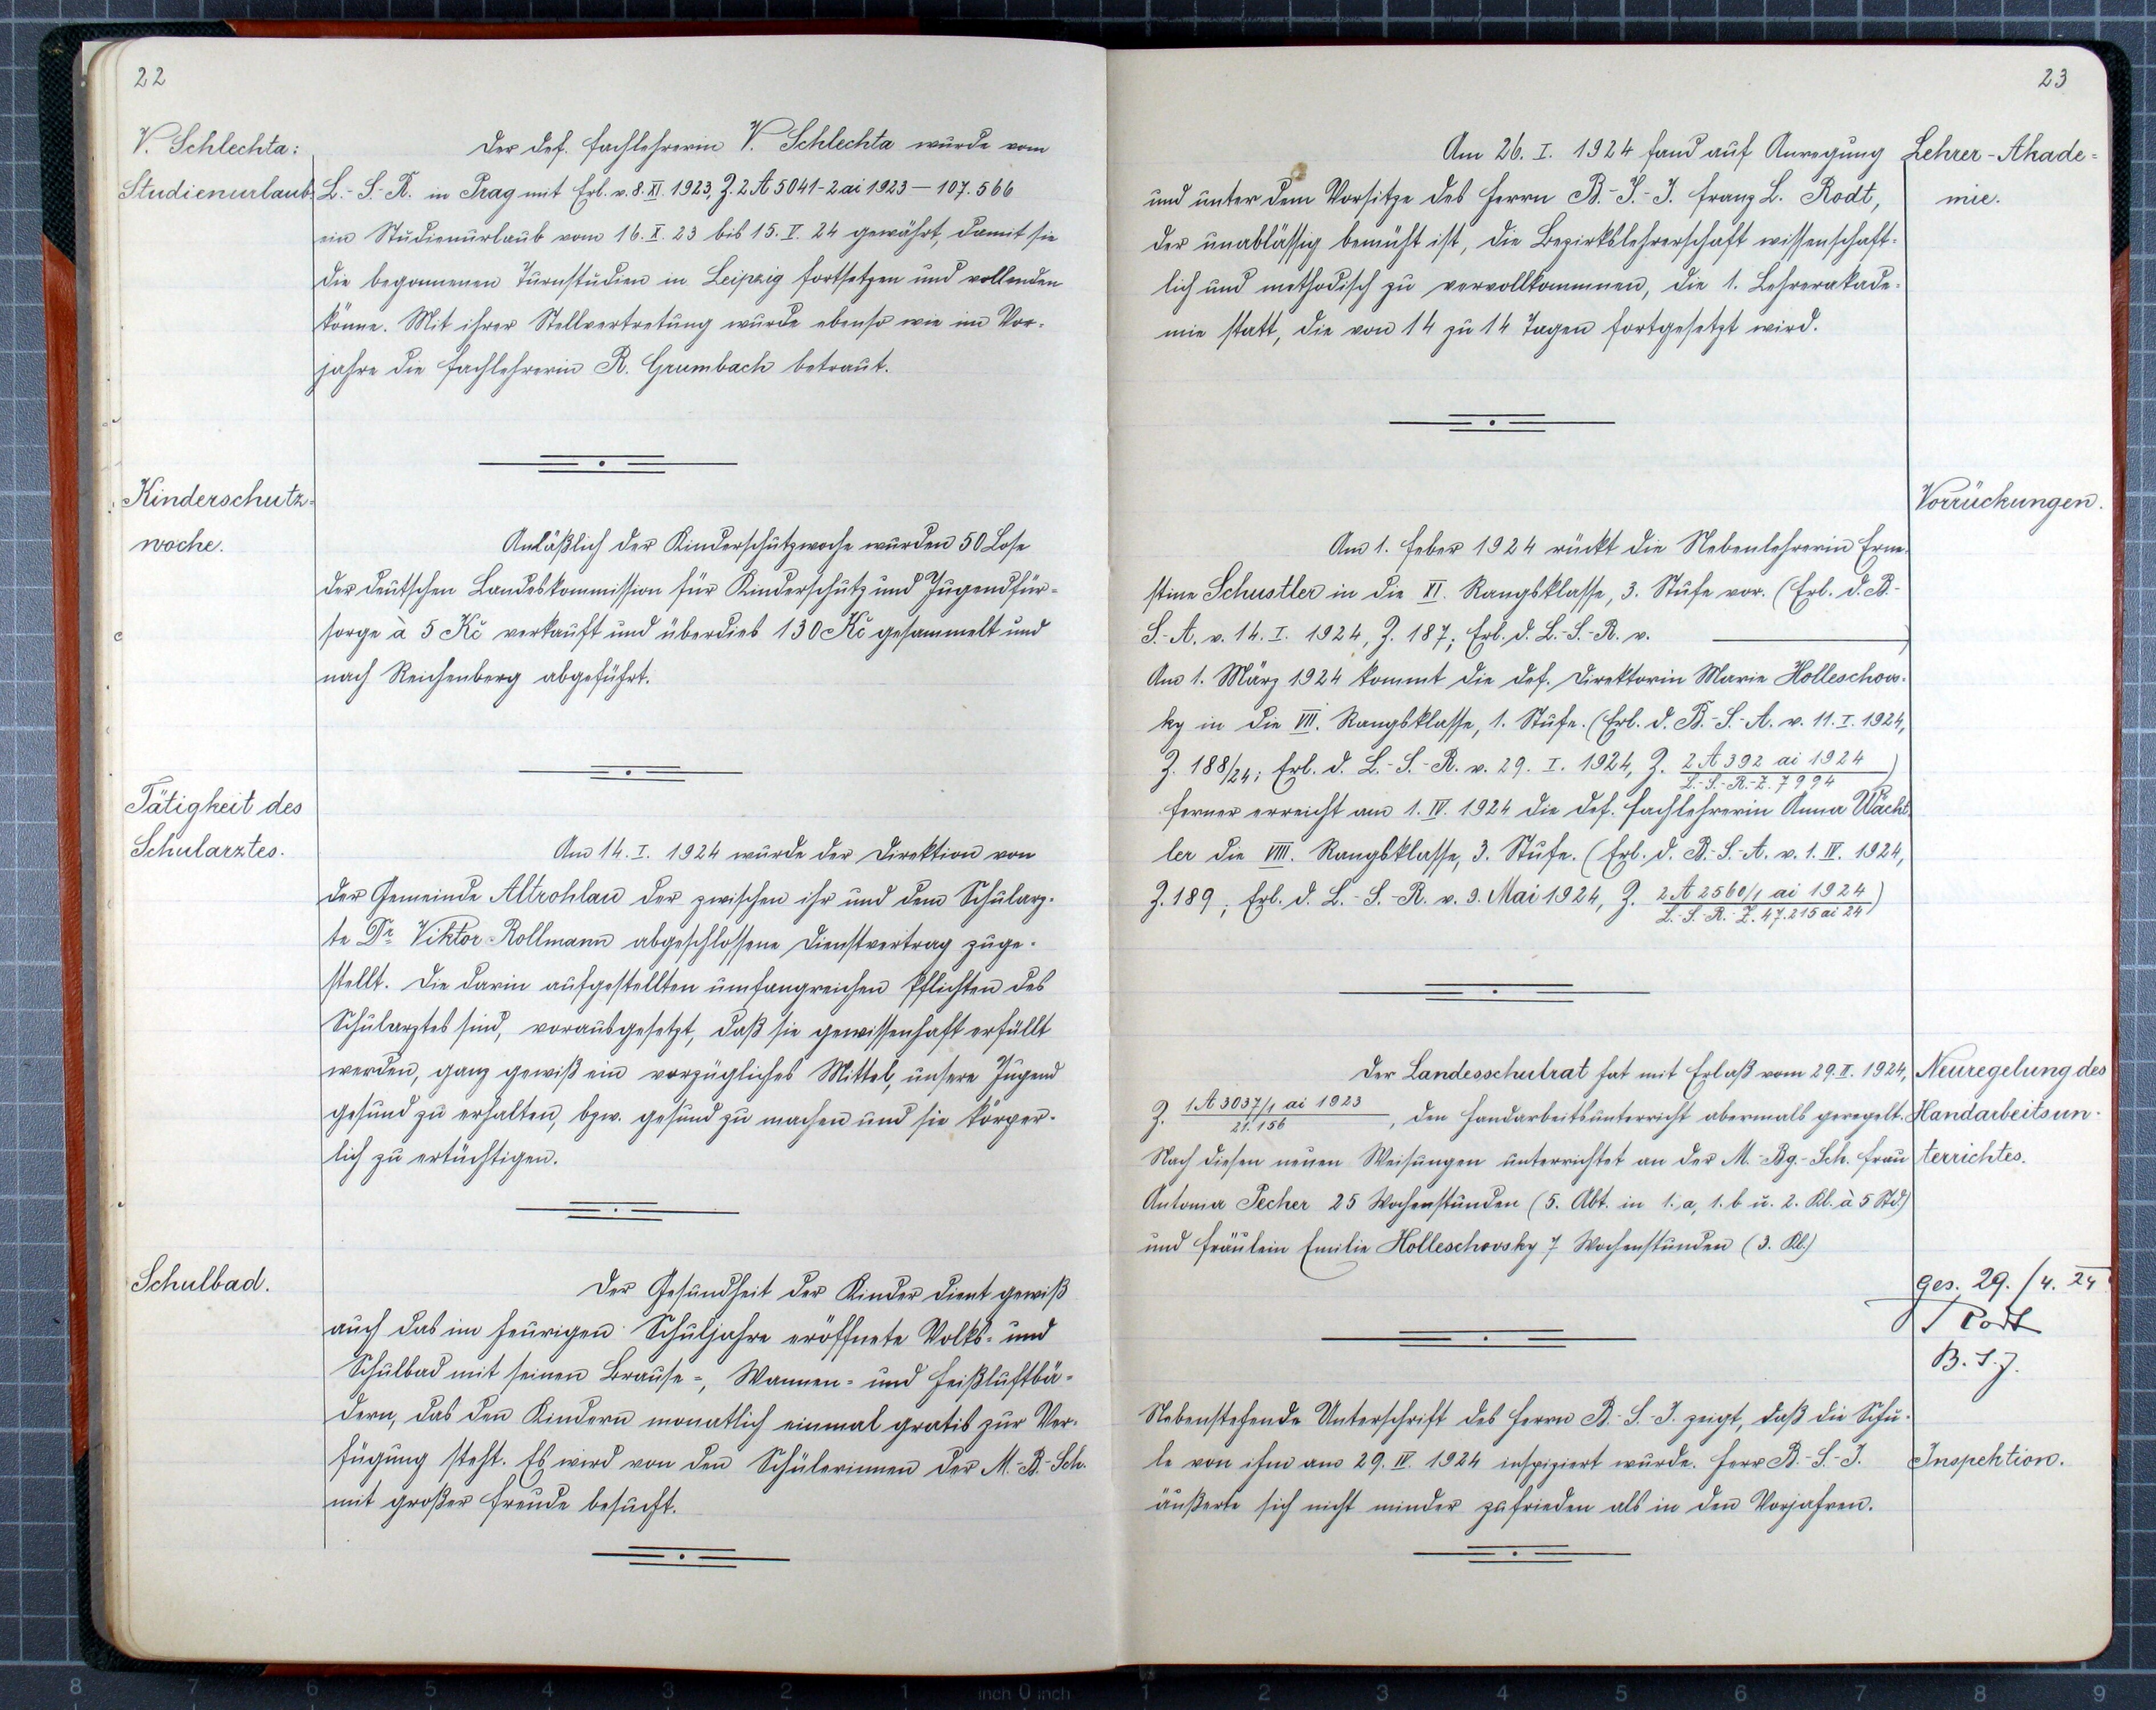 22
V. Schlechta:
Studienurlaub.
Der def. Fachlehrerin V. Schlechta wurde vom
L.-S.-R. in Prag mit Erl. v. 8. XI. 1923, Z. 2 A 5041-2 ai 1923 — 107.566
ein Studienurlaub vom 16. X. 23 bis 15. V. 24 gewährt, damit sie
die begonnenen Turnstudien in Leipzig fortsetzen und vollenden
könne. Mit ihrer Stellvertretung wurde ebenso wie im Vor-
jahre die Fachlehrerin R. Grumbach betraut.
Kinderschutz-
woche.
Anläßlich der Kinderschutzwoche wurden 50 Lose
der deutschen Landeskommission für Kinderschutz und Jugendfür-
sorge à 5 Kč verkauft und überdies 130 Kč gesammelt und
nach Reichenberg abgeführt.
Tätigkeit des
Schularztes.
Am 14. I. 1924 wurde der Direktion von
der Gemeinde Altrohlau der zwischen ihr und dem Schularz-
te Dr. Viktor Rollmann abgeschlossene Dienstvertrag zuge-
stellt. Die darin aufgestellten umfangreichen Pflichten des
Schularztes sind, vorausgesetzt, daß sie gewissenhaft erfüllt
werden, ganz gewiß ein vorzügliches Mittel, unsere Jugend
gesund zu erhalten, bzw. gesund zu machen und sie körper-
lich zu ertüchtigen.
Schulbad.
Der Gesundheit der Kinder dient gewiß
auch das im heurigen Schuljahre eröffnete Volks- und
Schulbad mit seinen Brause-, Wannen- und Heißluftbä-
dern, das den Kindern monatlich einmal gratis zur Ver-
fügung steht. Es wird von den Schülerinnen der M.-B.-Sch.
mit großer Freude besucht.
23
Lehrer-Akade-
mie.
Am 26. I. 1924 fand auf Anregung
und unter dem Vorsitze des Herrn B.-S.-I. Franz L. Rodt,
der unablässig bemüht ist, die Bezirkslehrerschaft wissenschaft-
lich und methodisch zu vervollkommnen, die 1. Lehrerakade-
mie statt, die von 14 zu 14 Tagen fortgesetzt wird.
Vorrückungen.
Am 1. Feber 1924 rückt die Nebenlehrerin Erne-
stine Schustler in die XI. Rangsklasse, 3. Stufe vor. (Erl. d. B.-
S.-A. v. 14. I. 1924, Z. 187; Erl. d. L.-S.-R. v. )
Am 1. März 1924 kommt die def. Direktorin Marie Holleschow-
ky in die VII. Rangsklasse, 1. Stufe. (Erl. d. B.-S.-A. v. 11. I. 1924,
Z. 188/24; Erl. d. L.-S.-R. v. 29. I. 1924, Z. 2 A 392 ai 1924
L.-S.-R.-Z. 7994)
Ferner erreicht am 1. IV. 1924 die def. Fachlehrerin Anna Wächt-
ler die VIII. Rangsklasse, 3. Stufe. (Erl. d. B.-S.-A. v. 1. IV. 1924,
Z. 189; Erl. d. L.-S.-R. v. 3. Mai 1924, Z. 2 A 2560/1 ai 1924
L.-S.-R.-Z. 47.215 ai 24)
Neuregelung des
Handarbeitsun-
terrichtes.
Der Landesschulrat hat mit Erlaß vom 29. II. 1924,
Z. 1 A 3037/1 ai 1923
21.156 , den Handarbeitsunterricht abermals geregelt.
Nach diesen neuen Weisungen unterrichtet an der M.-Bg.-Sch. Frau
Antonia Pecher 25 Wochenstunden (5. Abt. in 1. a, 1. b u. 2. Kl. à 5 Std.)
und Fräulein Emilie Holleschovsky 7 Wochenstunden (3. Kl.)
Ges. 29./4. 24
Rodt
B. S. J.
Nebenstehende Unterschrift des Herrn B.-S.-I. zeigt, daß die Schu-
le von ihm am 29. IV. 1924 inspiziert wurde. Herr B.-S.-I.
äußerte sich nicht minder zufrieden als in den Vorjahren.
Inspektion.
8 7 6 5 4 3 2 1 inch 0 inch 1 2 3 4 5 6 7 8 9